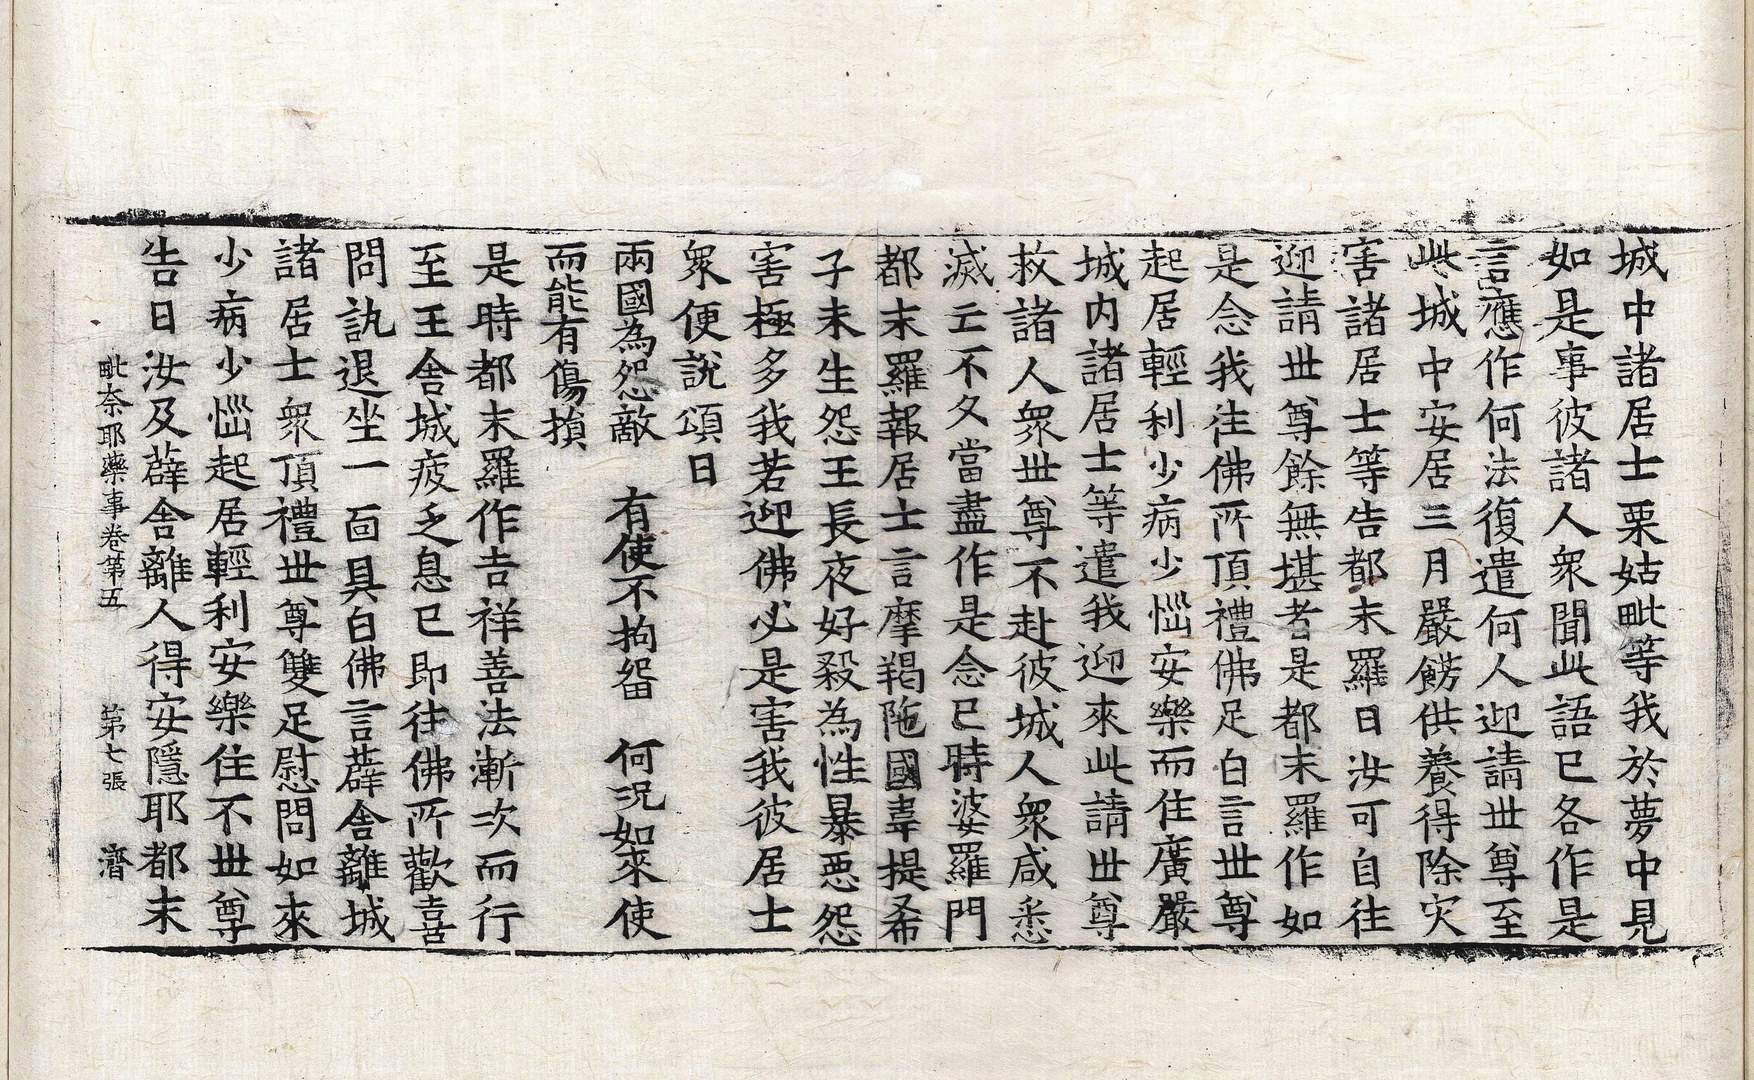 城中諸居士栗姑毗等我於夢中見
如是事彼諸人衆聞此語已各作是
言應作何法復遣何人迎請世尊至
此城中安居三月嚴餝供養得除灾
害諸居士等告都末羅曰汝可自往
迎請世尊餘無堪者是都末羅作如
是念我往佛所頂禮佛足白言世尊
起居輕利少病少惱安樂而住廣嚴
城内諸居士等遣我迎來此請世尊
救諸人衆世尊不赴彼城人衆咸悉
滅亡不久當盡作是念已時婆羅門
都末羅報居士言摩羯陁國韋提希
子未生怨王長夜好殺為性暴惡怨
害極多我若迎佛必是害我彼居士
衆便說頌曰
兩國為怨敵　有使不拘留　何況如來使
而能有傷損
是時都末羅作吉祥善法漸次而行
至王舍城疲乏息已即往佛所歡喜
問訊退坐一面具白佛言薜舍離城
諸居士衆頂禮世尊雙足慰問如來
少病少惱起居輕利安樂住不世尊
告曰汝及薜舍離人得安隱耶都末
毗奈耶藥事卷第五　第七張　濟